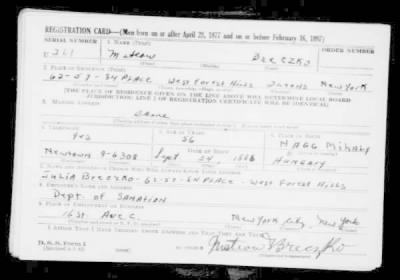 REGISTRATION CARD—(Men born on or after April 28, 1877 and on or before February 16, 1897)
SERIAL NUMBER 1. NAME (Print) ORDER NUMBER
U Breczko
2. PLACE OF RESIDENCE (Print)
62-57-84 PLACE West Forest Hills Queens New York
[THE PLACE OF RESIDENCE GIVEN ON THE LINE ABOVE WILL DETERMINE LOCAL BOARD
JURISDICTION; LINE 2 OF REGISTRATION CERTIFICATE WILL BE IDENTICAL]
3. MAILING ADDRESS
Same
4. TELEPHONE 5. AGE IN YEARS 6. PLACE OF BIRTH
yes 56 NAGG Mihaly
DATE OF BIRTH
Newtown 9-6308 Sept 24 Hungary
7. NAME AND ADDRESS OF PERSON WHO WILL ALWAYS KNOW YOUR ADDRESS
Julia Breczko-62-57-84 PLACE-West Forest Hills
8. EMPLOYER'S NAME AND ADDRESS
Dept. of Sanation
9. PLACE OF EMPLOYMENT OR BUSINESS
16 St Ave C. New York City, New York
I AFFIRM THAT I HAVE VERIFIED ABOVE ANSWERS AND THAT THEY ARE TRUE.
D. S. S. Form 1 Breczko